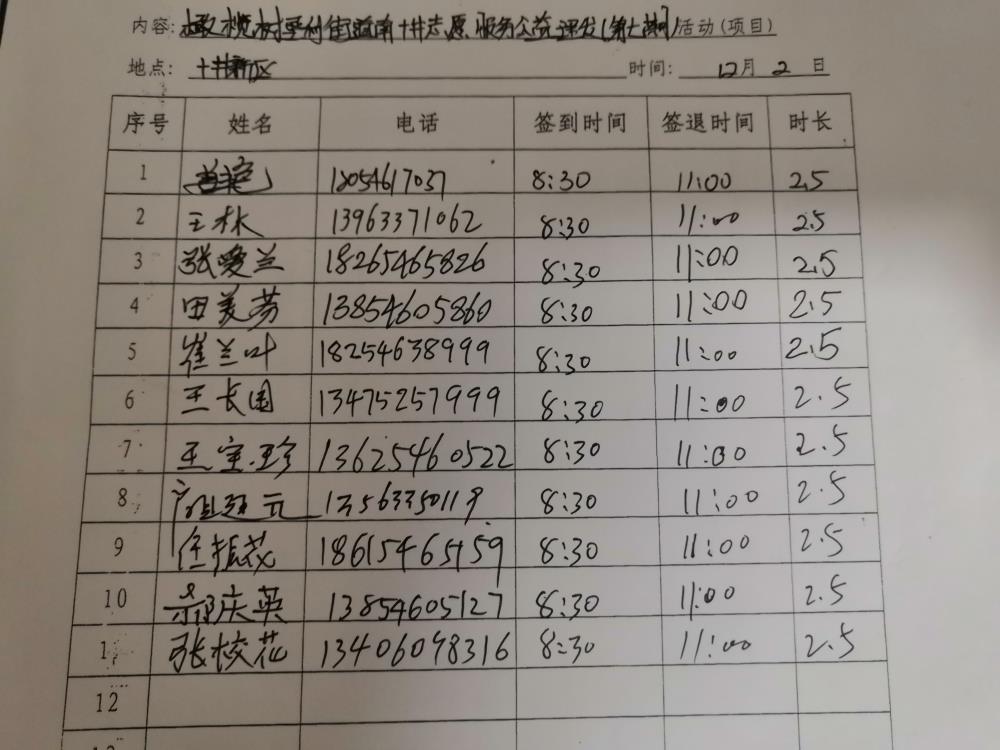 内容: 橄榄树垦利街道南十井志愿服务公益课发(第七期)活动(项目)
地点: 十井新区 时间: 12月 2 日
序号 姓名 电话 签到时间 签退时间 时长
1 18054617037 8:30 11:00 2.5
2 王林 13963371062 8:30 11:00 2.5
3 张爱兰 18265465826 8:30 11:00 2.5
4 田美芬 13854605860 8:30 11:00 2.5
5 崔兰叶 18254638999 8:30 11:00 2.5
6 王长国 13475257999 8:30 11:00 2.5
7 王宝珍 13625460522 8:30 11:00 2.5
8 13563350119 8:30 11:00 2.5
9 任振花 18615465159 8:30 11:00 2.5
10 郝庆英 13854605127 8:30 11:00 2.5
1 张校花 13406048316 8:30 11:00 2.5
12